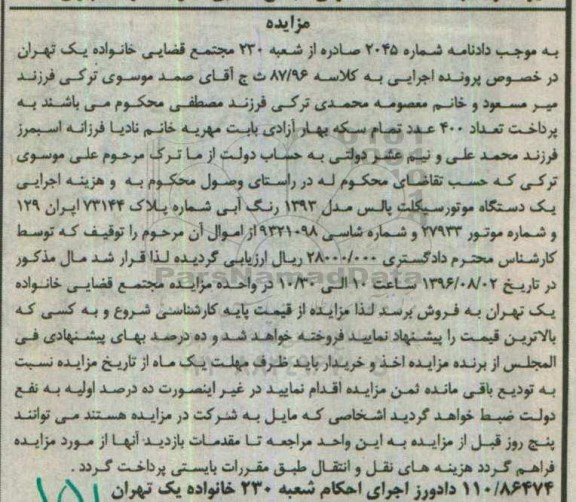 مزایده
به موجب دادنامه شماره ۲۰۴۵ صادره از شعبه ۲۳۰ مجتمع قضایی خانواده یک تهران
در خصوص پرونده اجرایی به کلاسه ۸۷/۹۶ ث ج آقای صمد موسوی ترکی فرزند
میر مسعود و خانم معصومه محمدی ترکی فرزند مصطفی محکوم می باشند به
پرداخت تعداد ۴۰۰ عدد تمام سکه بهار آزادی بابت مهریه خانم نادیا فرزانه اسیمرز
فرزند محمد علی و نیم عشر دولتی به حساب دولت از ما ترک مرحوم علی موسوی
ترکی که حسب تقاضای محکوم له در راستای وصول محکوم به و هزینه اجرایی
یک دستگاه موتورسیکلت پالس مدل ۱۳۹۳ رنگ آبی شماره پلاک ۷۳۱۴۴ ایران ۱۲۹
و شماره موتور ۲۷۹۳۳ و شماره شاسی ۹۳۲۱۰۹۸ از اموال آن مرحوم را توقیف که توسط
کارشناس محترم دادگستری ۲۸۰۰۰/۰۰۰ ریال ارزیابی گردیده لذا قرار شد مال مذکور
در تاریخ ۱۳۹۶/۰۸/۰۲ ساعت ۱۰ الی ۱۰/۳۰ در واحده مزایده مجتمع قضایی خانواده
یک تهران به فروش برسد لذا مزایده از قیمت پایه کارشناسی شروع و به کسی که
بالاترین قیمت را پیشنهاد نمایید فروخته خواهد شد و ده درصد بهای پیشنهادی فی
المجلس از برنده مزایده اخذ و خریدار باید ظرف مهلت یک ماه از تاریخ مزایده نسبت
به تودیع باقی مانده ثمن مزایده اقدام نمایید در غیر اینصورت ده درصد اولیه به نفع
دولت ضبط خواهد گردید اشخاصی که مایل به شرکت در مزایده هستند می توانند
پنج روز قبل از مزایده به این واحد مراجعه تا مقدمات بازدید آنها از مورد مزایده
فراهم گردد هزینه های نقل و انتقال طبق مقررات بایستی پرداخت گردد .
۱۱۰/۸۶۴۷۴ دادورز اجرای احکام شعبه ۲۳۰ خانواده یک تهران
۱۵۱
ParsNamadData